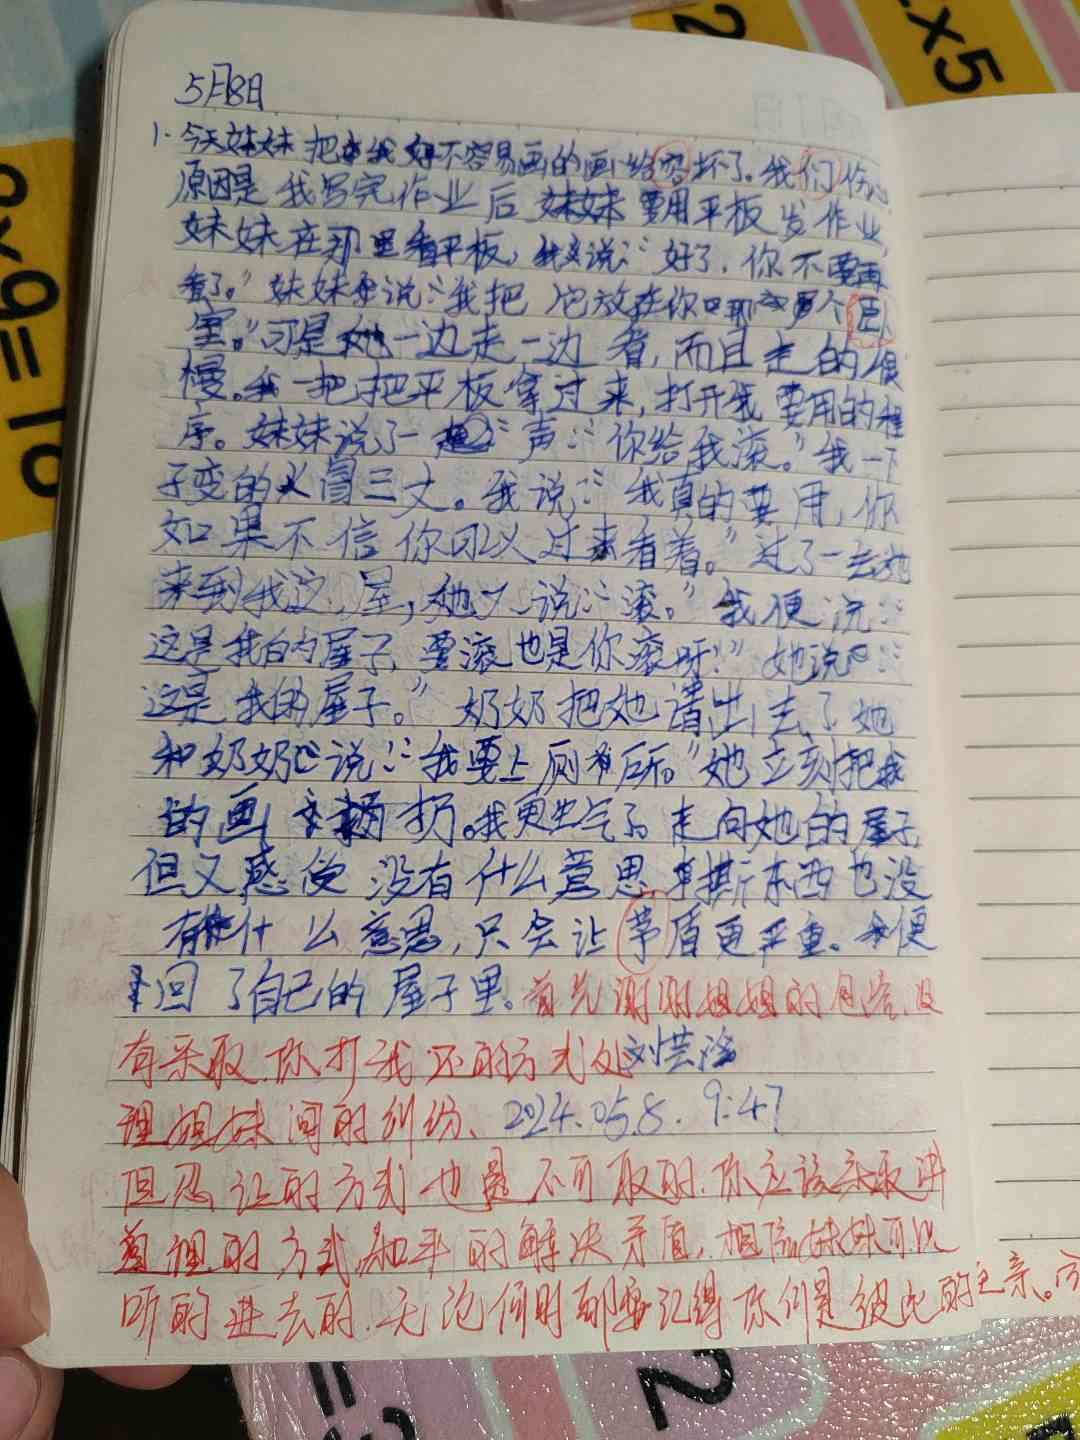 5月8日
1.今天妹妹把我好不容易画的画给弄坏了。我们伤心
原因是我写完作业后妹妹要用平板发作业,
妹妹在那里看平板,我说:“好了,你不要再
看了。”妹妹说:“我把它放在你那个卧
室。”可是她一边走一边看,而且走的很
慢。我一把把平板拿过来,打开我要用的程
序。妹妹说了一声:“你给我滚。”我一下
子变的火冒三丈。我说:“我真的要用,你
如果不信你可以过来看着。”过了一会她
来到我这屋,她又说:“滚。”我便说:
这是我的屋子,要滚也是你滚呀!”她说:
这是我的屋子。”奶奶把她请出去了她
和奶奶说:“我要上厕所。”她立刻把我
的画扔。我更生气了。走向她的屋子,
但又感觉没有什么意思,撕东西也没
有什么意思,只会让茅盾更严重。便
回了自己的屋子里。首先谢谢姐姐的包容,没
有采取你打我还的方式处刘芸
理姐妹间的纠纷、2024.05.8.9:47
但忍让的方式也是不可取的.你应该采取讲
道理的方式和平的解决矛盾,相信妹妹可以
听的进去的.无论何时都要记得你们是彼此的至亲。
9=
10
×5
2
2